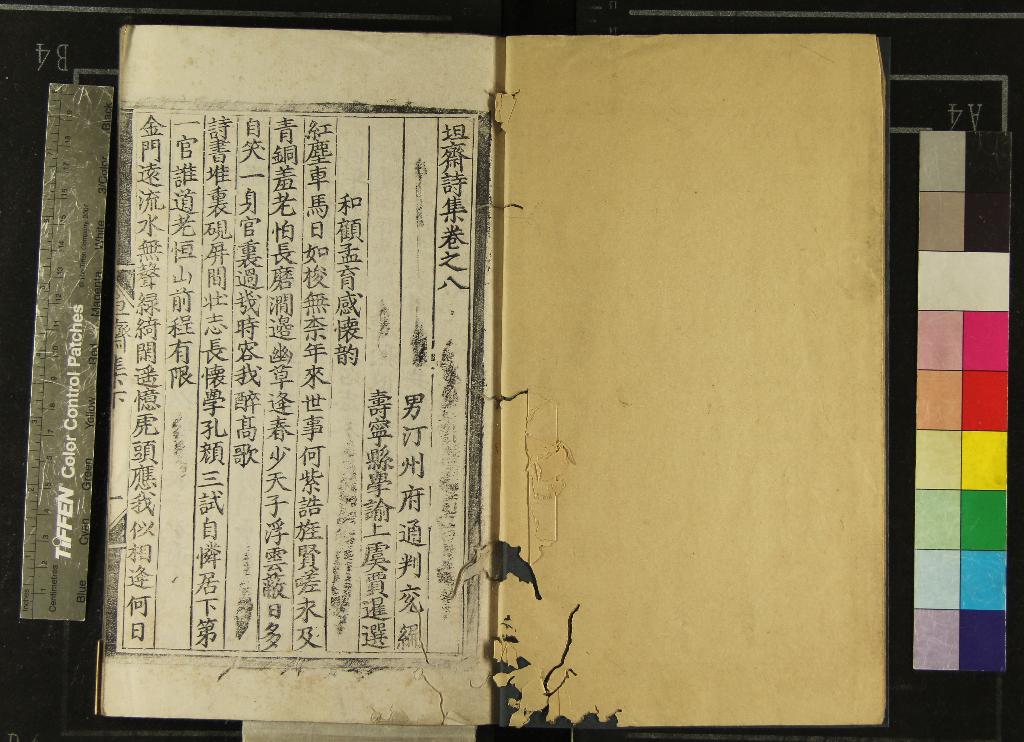 坦齋詩集卷之八
男汀州府通判兖編
壽寧縣學諭上虞賈暹選
和顧孟育感懷韵
紅塵車馬日如梭無柰年來世事何紫誥旌賢嗟未及
青銅羞老怕長磨澗邊幽草逢春少天子浮雲蔽日多
自笑一身官裏過幾時容我醉高歌
詩書堆裏硯屏間壯志長懷學孔顔三試自憐居下第
一官誰道老恒山前程有限
金門遠流水無聲緑綺閑遥憶虎頭應我似相逢何日
坦齋集下
一
TIFFEN Color Control Patches
Blue
Cyan
Green
Yellow
Red
Magenta
White
3/Color
Black
Centimetres
Inches
B4
A4